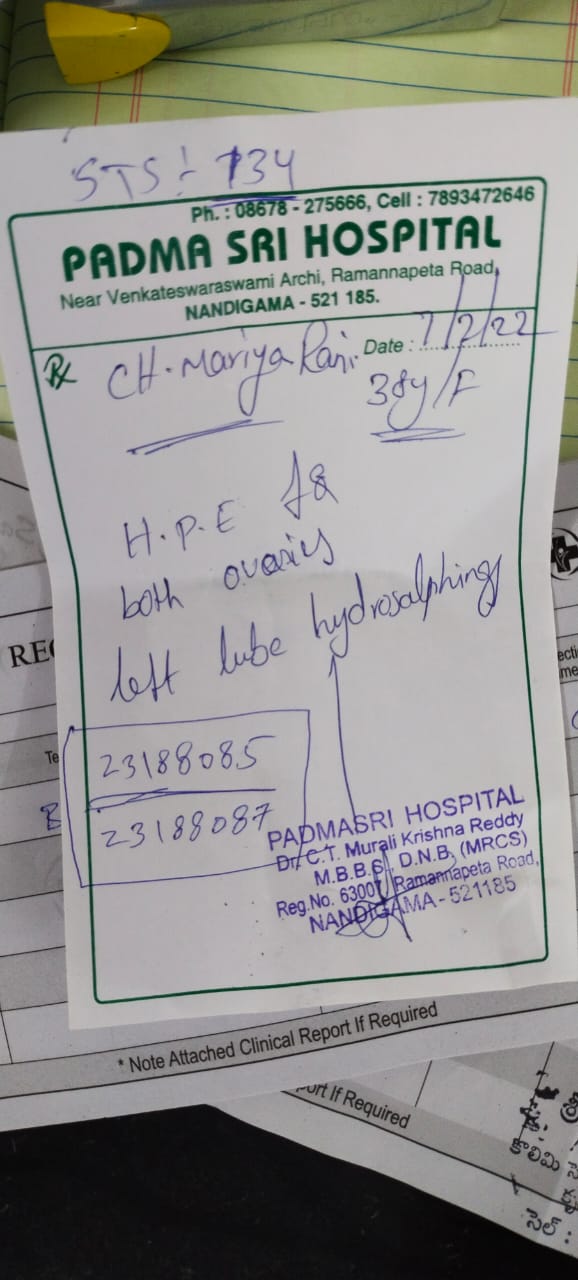 STS :- 734
Ph. : 08678 - 275666, Cell : 7893472646
PADMA SRI HOSPITAL
Near Venkateswaraswami Archi, Ramannapeta Road,
NANDIGAMA - 521 185.
Rx CH. Mariya Rani. Date : 7/2/22
38y/F
H.P.E for
both ovaries
left tube hydrosalphingx
23188085
23188087
PADMASRI HOSPITAL
Dr. C.T. Murali Krishna Reddy
M.B.B.S., D.N.B, (MRCS)
Reg.No. 63007, Ramannapeta Road,
NANDIGAMA - 521185
* Note Attached Clinical Report If Required
ort If Required
కొలిమి
సెల్ :